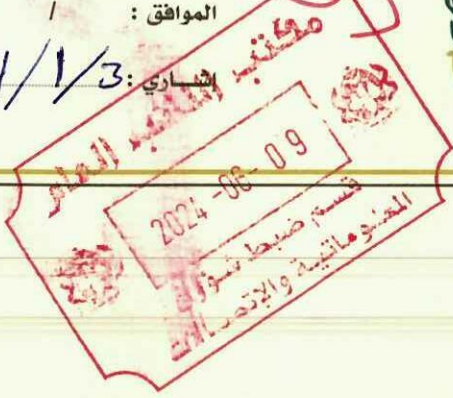 الموافق : /
إشاري : 1/1/3
مكتب النائب العام
2024-06-09
قسم ضبط شؤون
المعلوماتية والإتصالات